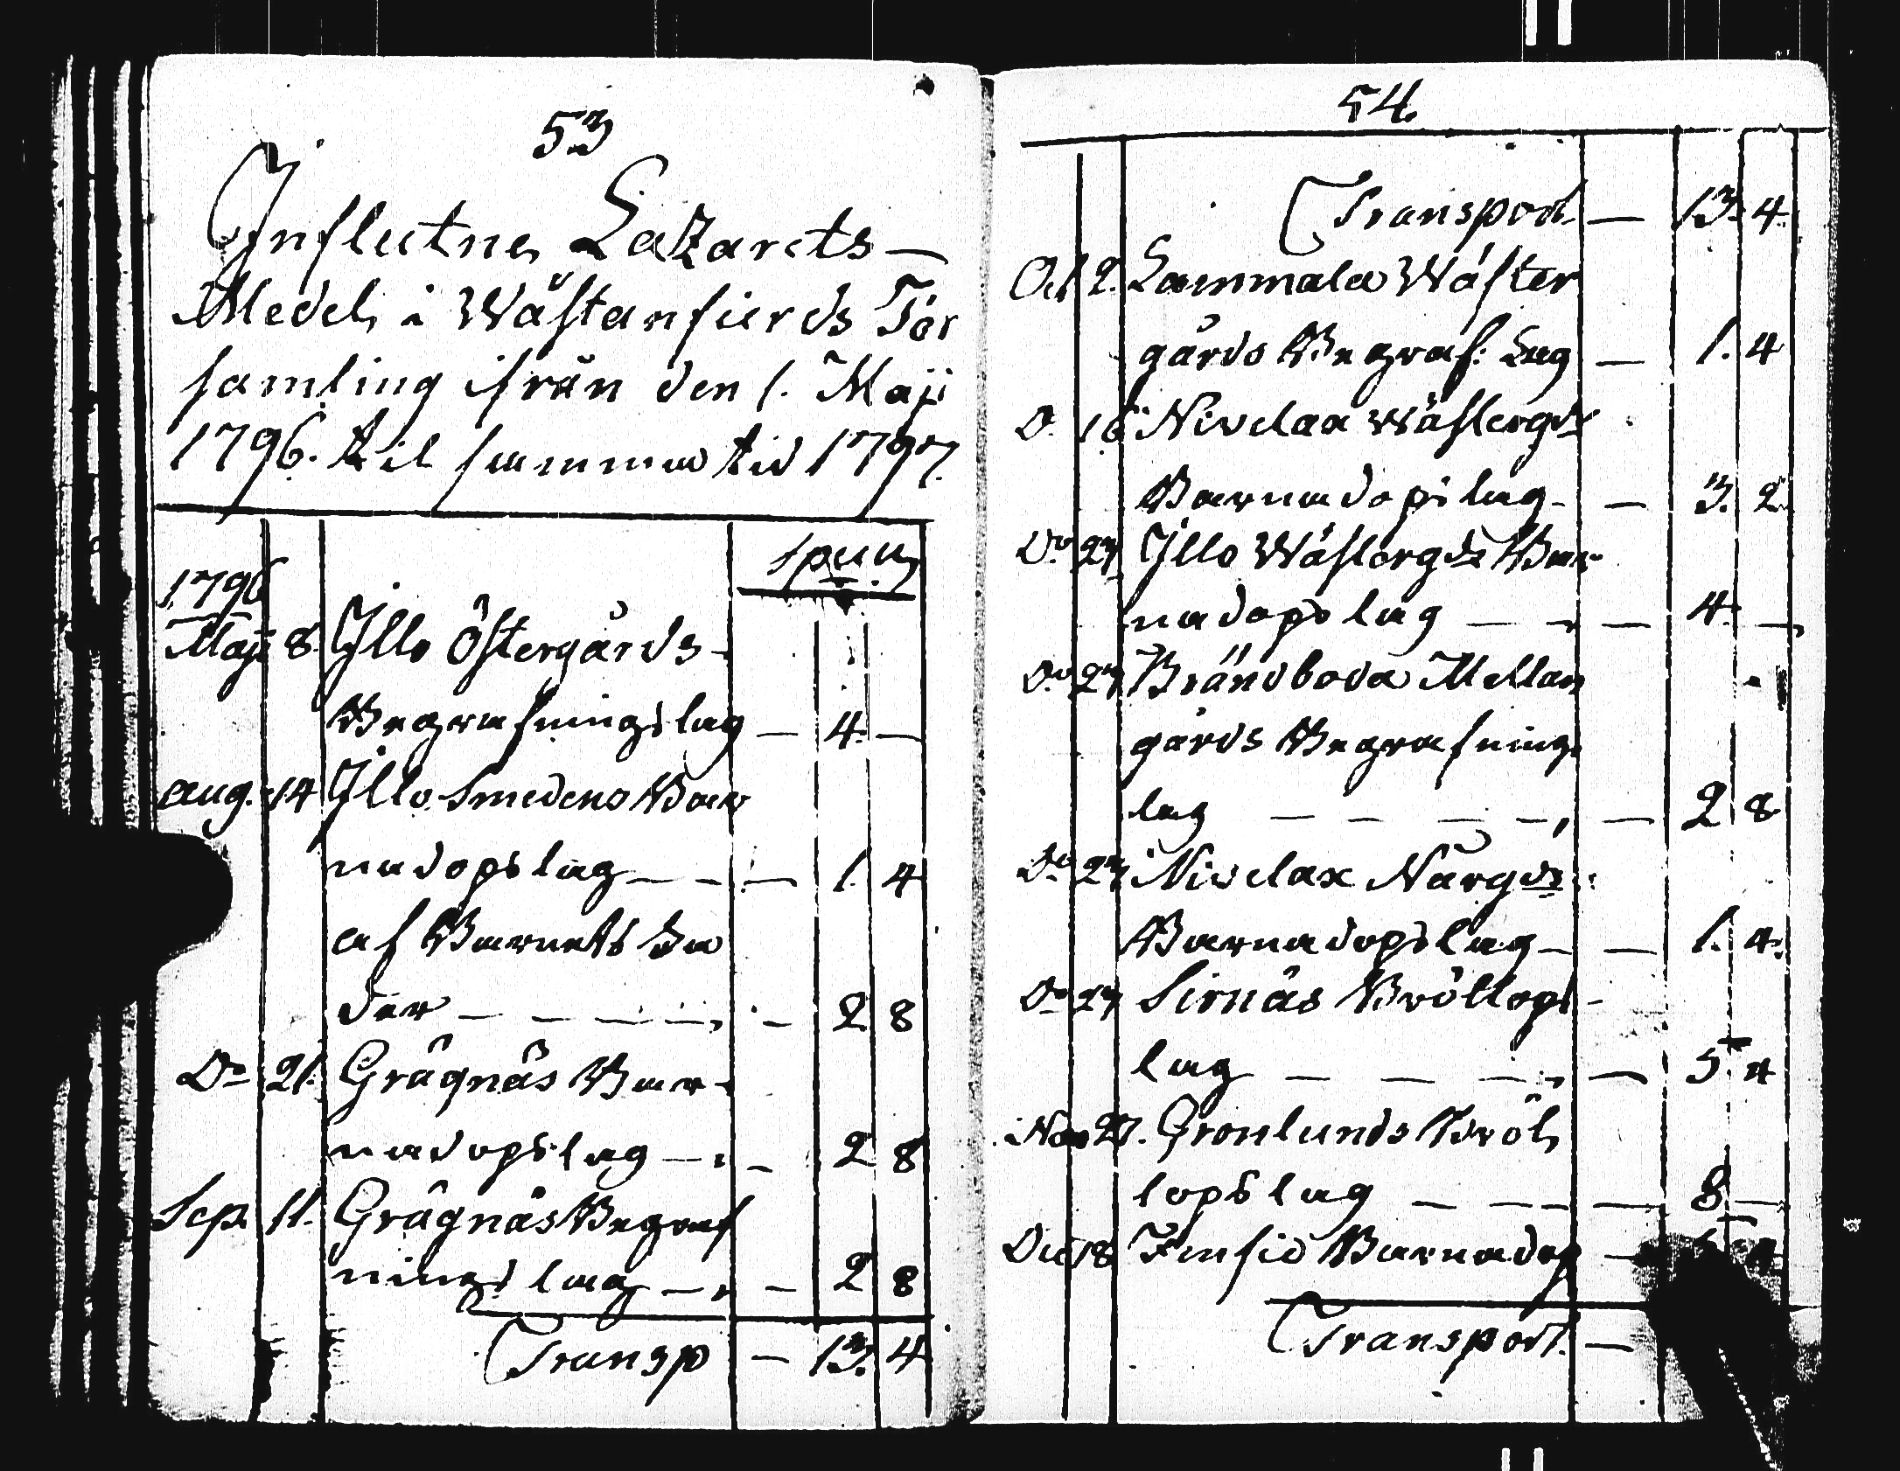 53
Influtne Lazarets-
Medel i Wästanfierds För
samling ifrån den 1. Maji
1796. til samma tid 1797.
spec.
1796
Maji 8. Illo Östergårds-
Begrafningslag — 4. —
Aug. 14 Illo Smedens Bar
nadopslag — — — 1. 4
af Barnets Fa
der — — — — — 2 8
Do 21. Grägnäs Bar-
nadopslag — — 2 8
Sep. 11. Grägnäs Begraf
ningslag — — 2 8
Transp — 13. 4
54.
Transport — 13. 4
Oct 2. Lammala Wäster
gårds Begraf: Lag — 1. 4
D. 16 Nivelax Wästergds
Barnadopslag — — 3. 2
Do 27 Illo Wästergds Bar
nadopslag — — — 4. —
Do 27 Brändboda Mellan
gårds Begrafnings
lag — — — — — 2 8
Do 27 Nivelax Närgds
Barnadopslag — — 1. 4.
Do 27 Sirnäs Bröllops-
lag — — — — — 5. 4
Nov 27. Gronlunds Bröl
lopslag — — — — 8 —
Dec 18 Barnadop —
Transport. —